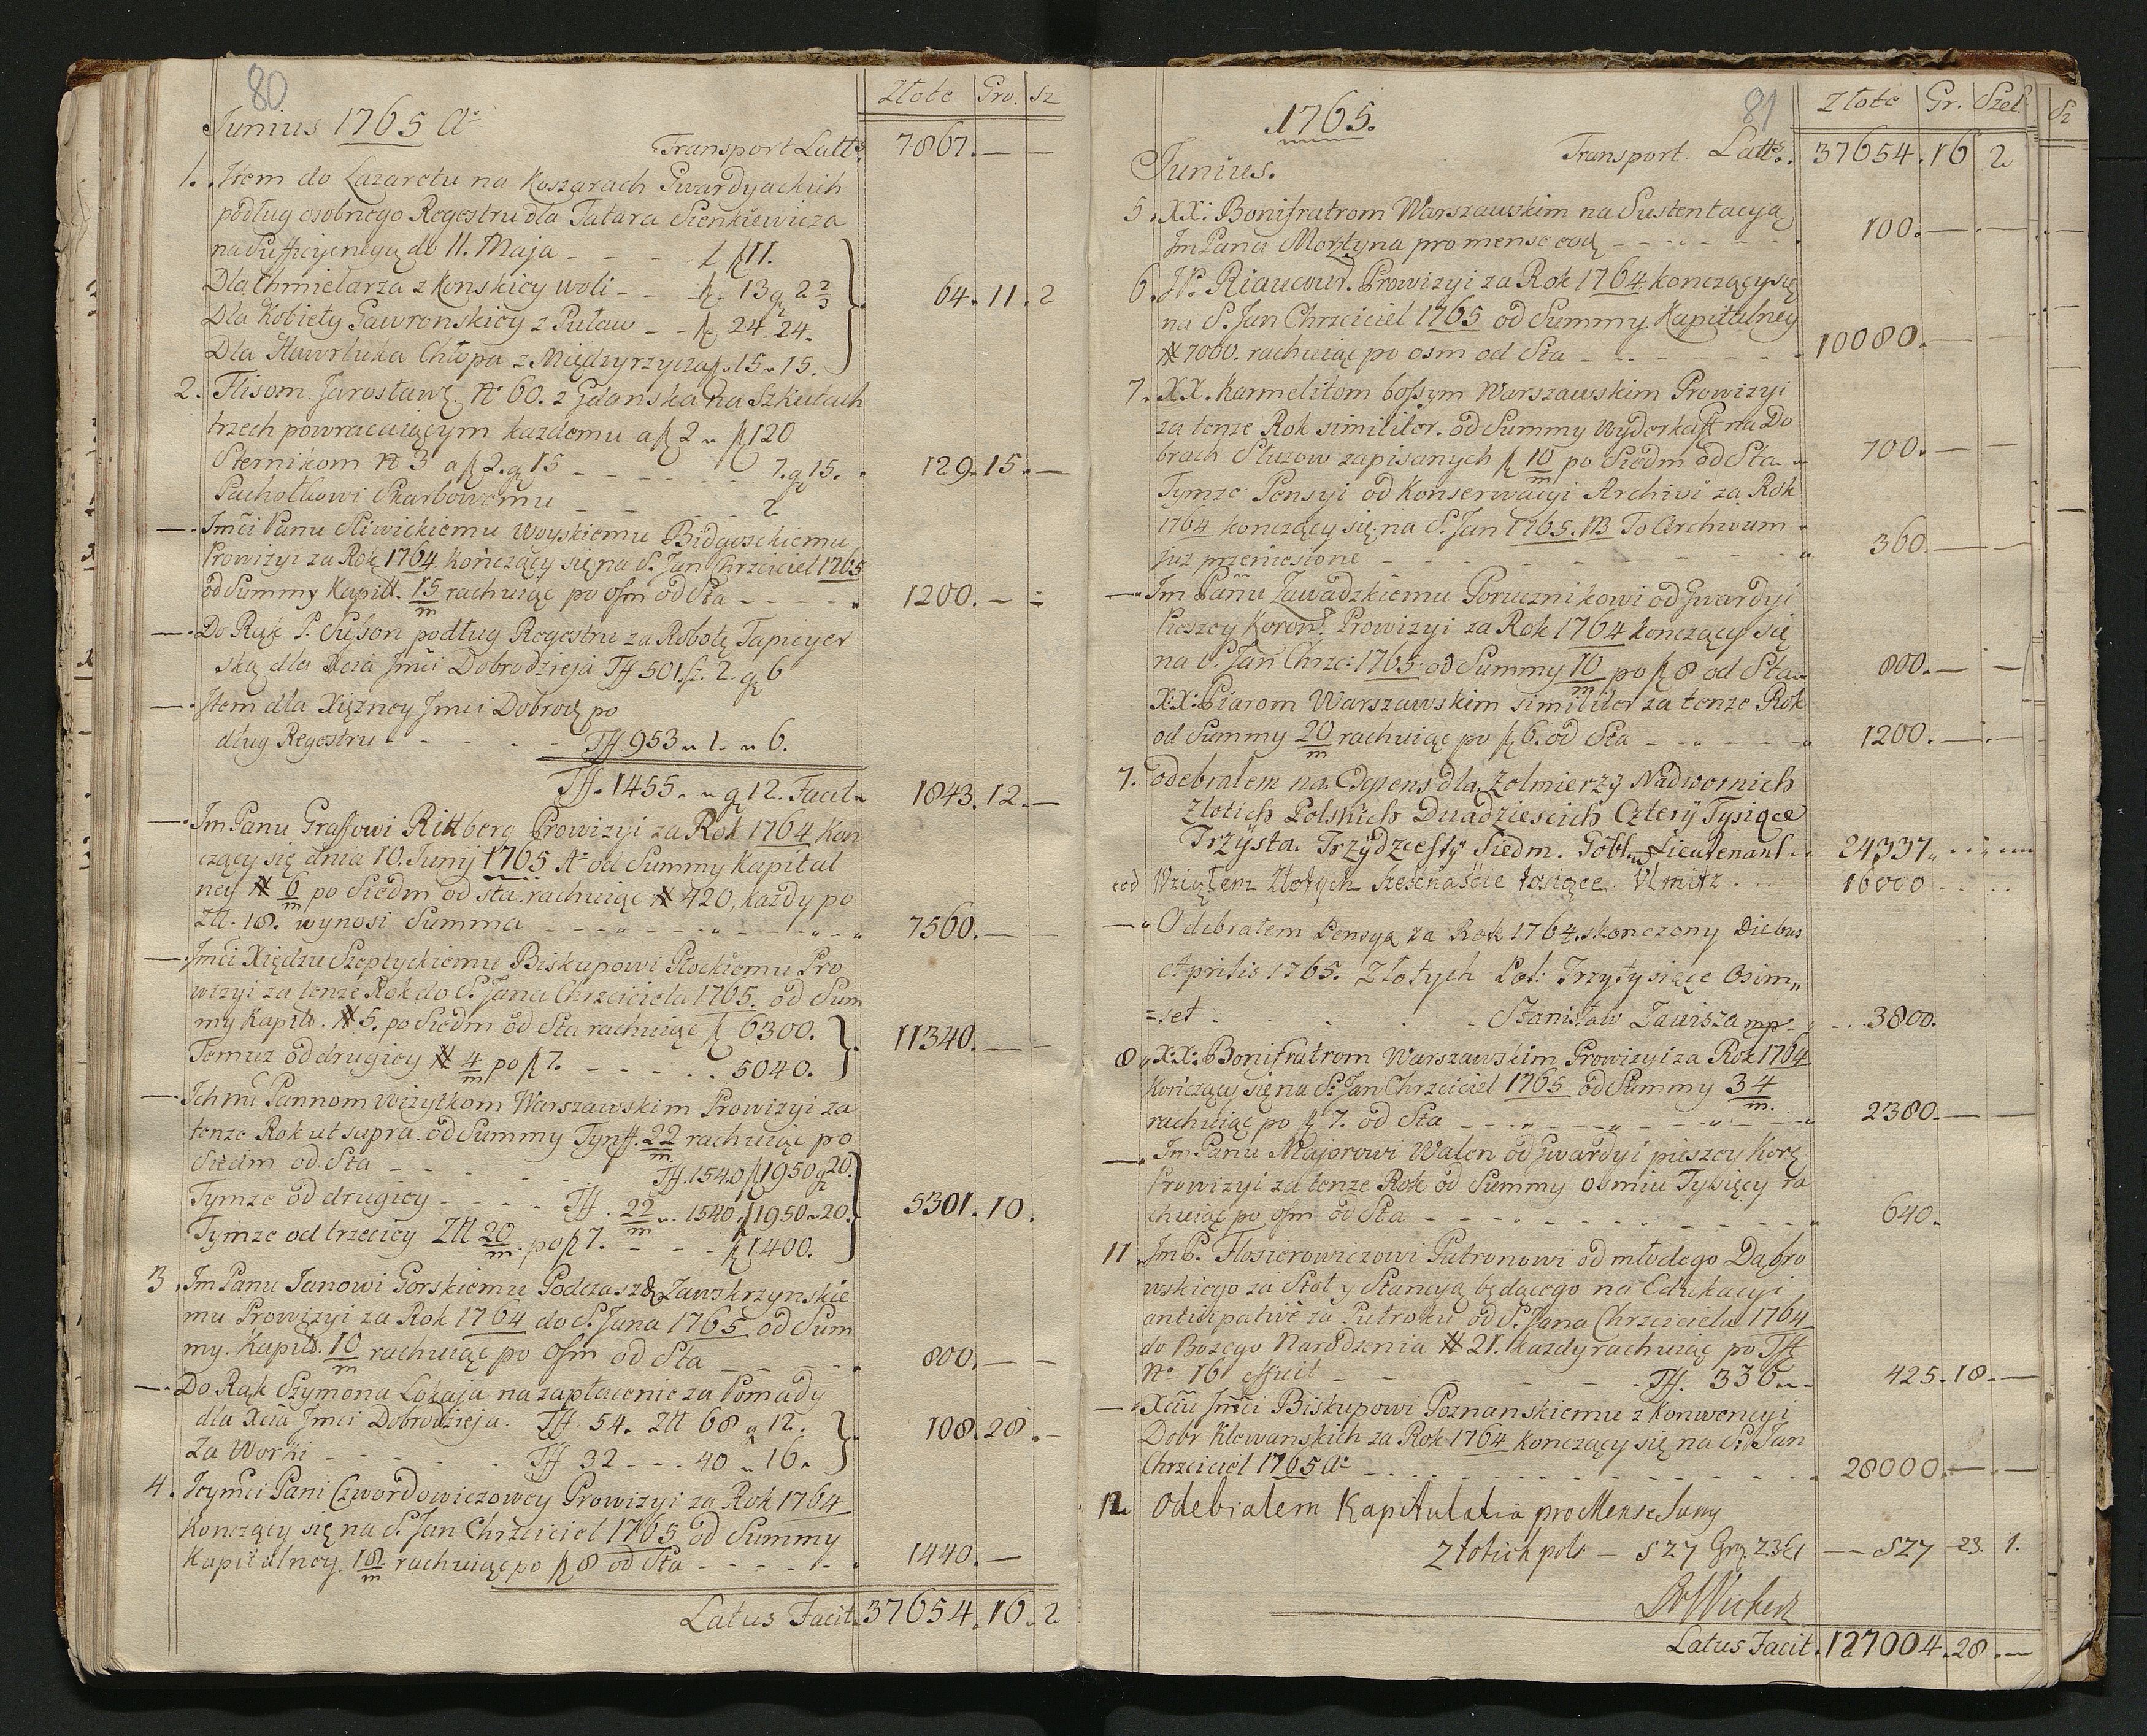 80
Junius 1765 Ao
Złote Gro. Sz
Transport Latts. 7867. — —
1. Item do Lazaretu na Koszarach Gwardyackich
podług osobnego Regestru dla Tatara Sienkiewicza
na Sufficyencyą do 11. Maja - - - - f 11.
Dla Chmielarza z Konskicy woli - - - f. 13 g 2 2/3
64. 11. 2
Dla Kobiety Gawronskicy z Puław - - f 24. 24.
Dla Hawryluka Chłopa z Międzyrzycza f. 15. 15.
2. Flisom Jarosławs. No 60. z Gdanska na Szkutach
trzech powracaiącym każdemu a f 2 „ f 120
Sternikom No 3 a f 2. g 15 - - - - - 7. g 15. 129. 15. —
Pachołkowi Skarbowemu - - - - - 2
—. Jmci Panu Sliwickiemu Woyskiemu Bidgosckiemu
Prowizyi za Rok 1764 kończący się na S. Jan Chrzciciel 1765
od Summy Kapitt. 15/m rachuiąc po osm od Sta - - - - 1200. — —
—. Do Rąk P. Suson podług Regestru za Robotę Tapicyer
ską dla Xcia Jmci Dobrodzieja Tff 501. sz. 2. g 6
—. Item dla Xiężney Jmci Dobrodz po
dług Regestru - - - - - Tff 953 „ 1. „ 6.
Tff. 1455. „ g 12. Facit „ 1843. 12. —
—. Jm Panu Graffowi Rittberg Prowizyi za Rok 1764 Kon
czący się dnia 10. Junij 1765 Ao od Summy Kapital
ney # 6/m po Siedm od sta. rachuiąc # 420, każdy po
Ztt. 18. wynosi Summa - - - - - - 7560. — —
—. Jmci Xiędzu Szeptyckiemu Biskupowi Płockiemu Pro
wizyi za tenze Rok do S. Jana Chrzciciela 1765. od Sum
my Kapitt. # 5. po Siedm od Sta rachuiąc f 6300.
11340. — —
Temuz od drugicy # 4/m po f 7. - - - - - 5040.
—. Ichmć Pannom Wizytkom Warszawskim Prowizyi za
tenze Rok ut supra. od Summy Tynff. 22/m rachuiąc po
Siedm od Sta - - - - - Tff. 1540 f 1950 g 20.
Tymze od drugicy - - - - Tff. 22/m „. 1540. f 1950 „ 20. 5301. 10.
Tymze od trzecicy Ztt 20/m. po f 7. - - - f 1400.
3. Jm Panu Janowi Gorskiemu Podczasz Zawskrzynskie
mu Prowizyi za Rok 1764 do S. Jana 1765 od Sum
my. Kapitt. 10/m rachuiąc po Osm od Sta - - - - 800. — —
—. Do Rąk Szymona Lokaja na zapłacenie za Pomady
dla Xcia Jmci Dobrodzieja. Tff. 54. Ztt 68 g 12.
108. 28. —
Za Worki - - - - - Tff 32 - - - 40 „ 16.
4. Jeymci Pani Czwordowiczowey Prowizyi za Rok 1764
Konczący się na S. Jan Chrzciciel 1765 od Summy
Kapitalney. 18/m rachuiąc po f 8 od Sta - - - - 1440. —
Latus Facit. 37654. 16. 2
81
1765.
Złote Gr. Szel. Sz
Junius. Transport. Latts. 37654. 16 2
5. XX: Bonifratrom Warszawskim na Sustentacyą
Jm Pana Morztyna pro mense eod - - - - 100. — —
6. JP. Riaucour. Prowizyi za Rok 1764 konczący się
na S. Jan Chrzciciel 1765 od Summy Kapitalney
# 7000. rachuiąc po osm od Sta - - - - - 10080. — —
7. XX. Karmelitom bossym Warszawskim Prowizyi
za tenze Rok similiter. od Summy Wyderkaff na Do
brach Służow zapisanych f 10/m po Siedm od Sta - 700. — —
Tymze Pensyi od Konserwacyi Archivi za Rok
1764 konczący się na S. Jan 1765. NB To Archivum
juz przeniesione - - - - - - 360. — —
—. Jm Panu Zawadzkiemu Porucznikowi od Gwardyi
Pieszey Koron. Prowizyi za Rok 1764 konczący się
na S. Jan Chrzc: 1765. od Summy 10/m po f 8 od Sta 800. — —
X:X: Piarom Warszawskim similiter za tenze Rok
od Summy 20/m rachuiąc po f 6. od Sta - - - - 1200. — —
7. odebrałem na Expens dla Zołmierzy Nadwornich
Złotich Polskich Dwadziescich Cztery Tysiące
Trzysta. Trzydziesty Siedm. Göbl. Lieutenant 24337.
eod Wziąłem Złotych Szesnascie tosiące. 16000
—. Odebrałem Pensyą za Rok 1764. skonczony Diebus
Aprilis 1765. Złotych Pol: Trzytysiące Osim„
=set - - - - - Stanisław Zawisza mp. 3800.
8. X:X: Bonifratrom Warszawskim Prowizyi za Rok 1764
kończący się na S. Jan Chrzciciel 1765 od Summy 34/m.
rachuiąc po f 7. od Sta - - - - - - 2380. — —
—. Jm Panu Majorowi Walen od Gwardyi pieszey Kor
Prowizyi za tenze Rok od Summy osmiu Tysięcy ra
chuiąc po osm od Sta - - - - - - 640.
11. Jm P. Flosierowiczowi Patronowi od młodego Dąbro
wskiego za Stoł y Stancyą będącego na Edukacyi
antidipativè za Pułroku od S. Jana Chrzciciela 1764
do Bozego Narodzenia # 21. każdy rachuiąc po Tff
No. 16 efficit - - - - - - Tff. 336 „ - 425. 18. —
—. Xciu Jmci Biskupowi Poznanskiemu z Konwencyi
Dobr Klewanskich za Rok 1764 konczący się na S. Jan
Chrzciciel 1765 Ao - - - - - - 28000. — —
12. Odebralem Kapitulatia pro Mense Juny
Złotich pols — 527 Gro. 23 — 527 23. 1.
Latus Facit. 127004. 28. —